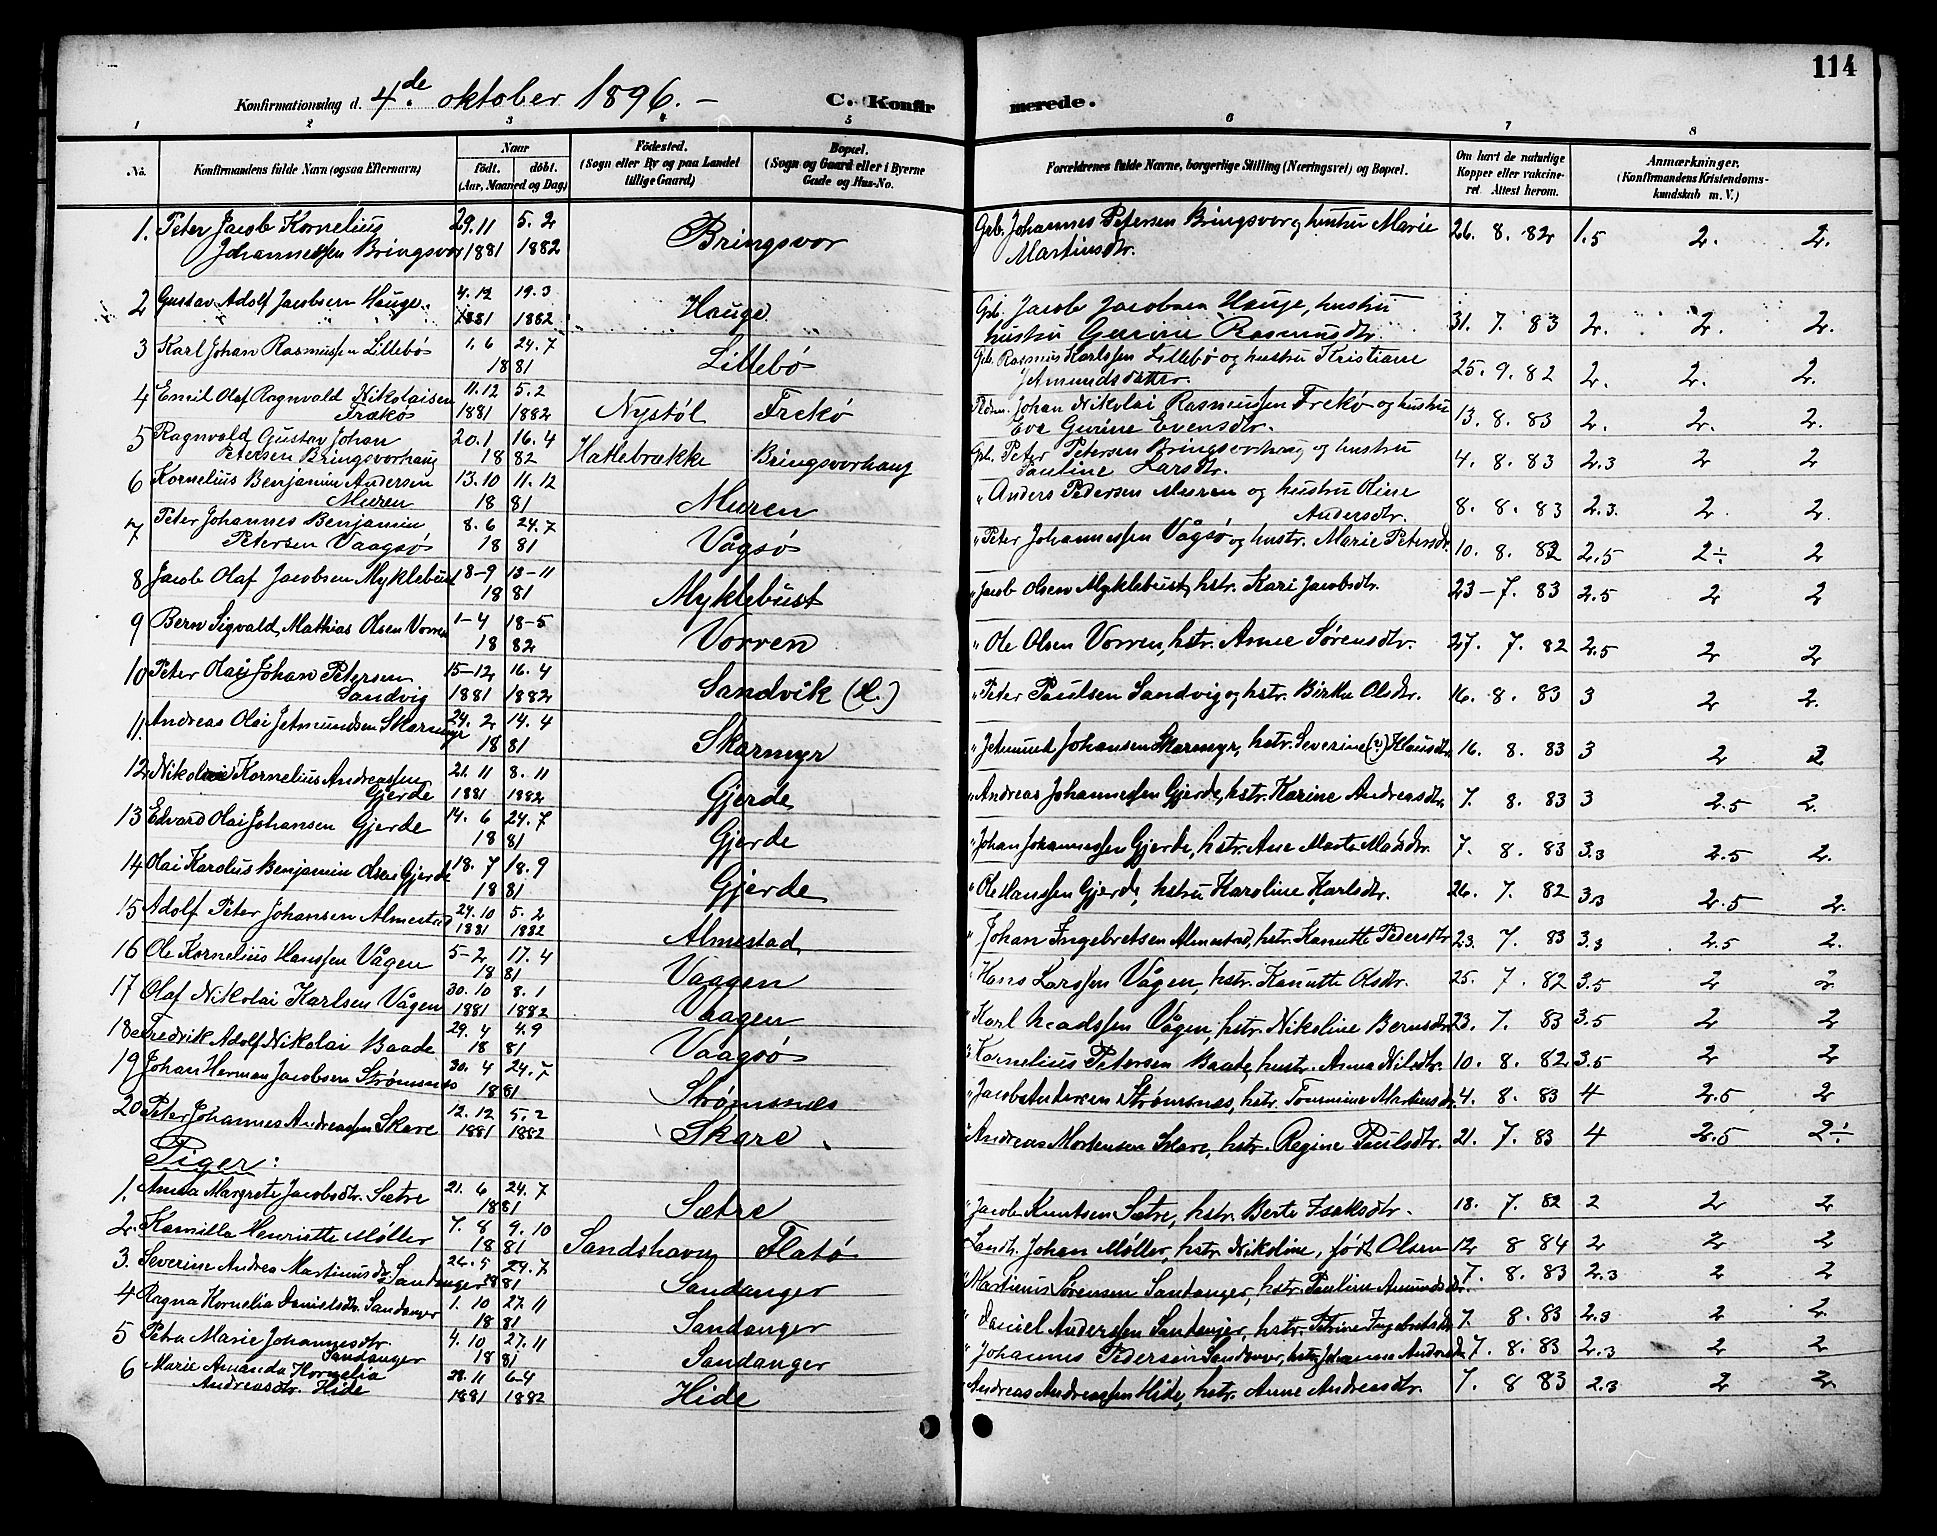 114
Konfirmationsdag d. 4.de oktober 1896. – C. Konfirmerede.
1 2 3 4 5 6 7 8
No. Konfirmandens fulde Navn (ogsaa Efternavn) Naar født. døbt. (Aar, Maaned og Dag) Fødested. (Sogn eller By og paa Landet tillige Gaard) Bopæl. (Sogn og Gaard eller i Byerne Gade og Hus-No. Forældrenes fulde Navne, borgerlige Stilling (Næringsvei) og Bopæl. Om havt de naturlige Kopper eller vakcineret. Attest herom. Anmærkninger. (Konfirmandens Kristendomskundskab m. V.)
1. Peter Jacob Kornelius 29.11 5.2 Bringsvor Grb. Johannes Petersen Bringsvor og hustru Marie 26. 8. 82 1.5 2. 2.
Johannessen Bringsvor 1881 1882 Martinusdtr.
2 Gustav Adolf Jacobsen Hauge. 4.12 19.3 Hauge Grb. Jacob Jacobsen Hauge, hustru
1881 1882 hustru Gurine Rasmusdtr. 31. 7. 83 2. 2. 2.
3 Karl Johan Rasmussen Lillebø 1.6 24.7 Lillebø Grb. Rasmus Karlssen Lillebø og hustru Kristiane
1881 Jetmundsdatter. 25. 9. 82 2. 2. 2.
4 Emil Olaf Ragnvald Nikolaisen 11.12 5.2 Nystøl Frekø Johan Nikolai Rasmussen Frekø og hustru
Frækø 1881 1882 Eve Gurine Evensdtr. 13. 8. 83 2. 2. 2.
5 Ragnvald Gustav Johan 20.1 16.4 Hatlebrække Bringsvorhaug Grb. Peter Petersen Bringsvorhaug og hustru
Petersen Bringsvorhaug 1882 Pauline Larsdtr. 4. 8. 83 2.3 2 2
6 Kornelius Benjamin Andersen 13.10 11.12 Muren " Anders Pedersen Muren og hustru Oline
Muren 1881 Andersdtr. 8. 8. 83 2.3. 2. 2.
7 Peter Johannes Benjamin 8.6 24.7 Vågsø " Peter Johannessen Vågsø og hustr. Marie Petersdtr. 10. 8. 82 2.5 2÷ 2
Petersen Vaagsø 1881
8 Jacob Olaf Jacobsen Myklebust 18-9 13-11 Myklebust " Jacob Olsen Myklebust, hstr. Kari Jacobsdtr. 23-7. 83 2.5 2 2
1881
9 Bern Sigvald Mathias Olsen Vorren 1-4 18-5 Vorren " Ole Olsen Vorren, hstr. Anne Sørensdtr. 27. 7. 82 2.5 2 2
1882
10 Peter Olai Johan Petersen 15-12 16.4 Sandvik " Peter Paulsen Sandvig og hstr. Birthe Olsdtr. 16. 8. 83 3 2 2.
Sandvig 1881 1882
11. Andreas Olai Jetmundsen Skarmyr 24.2 14.4 Skarmyr " Jetmund Johansen Skarmyr, hstr. Severine (?) Klausdtr. 16. 8. 83 3 2 2
1881
12 Nikolai Kornelius Andreassen 21.11 8.11 Gjerde " Andreas Johannessen Gjerde, hstr. Karine Andreasdtr. 7. 8. 83 3 2.5 2.
Gjerde 1881 1882
13 Edvard Olai Johansen Gjerde 14.6 24.7 Gjerde " Johan Johannessen Gjerde, hstr. Ane Marte Madsdtr. 7. 8. 83 3.3 2.5 2.
1881
14 Olai Karolus Benjamin Olsen Gjerde 18.7 18.9 Gjerde " Ole Hanssen Gjerde, hstru Karoline Karlsdtr. 26. 7. 82 3.3 2.5 2.
1881
15 Adolf Peter Johansen Almestad 24.10 5.2 Almestad " Johan Ingebretsen Almestad, hstr. Kanutte Pedersdtr 23. 7. 83 3.3 2.5 2.
1881 1882
16 Ole Kornelius Hanssen Vågen 5-2 17.4 Vaagen " Hans Larssen Vågen, hstr. Kanutte Olsdtr. 25. 7. 82 3.5 2 2
1881
17 Olaf Nikolai Karlsen Vågen 30.10 8.1 Vaagen " Karl Madssen Vågen, hstr. Nikoline Bernsdtr. 23. 7. 83 3.5 2 2
1881 1882
18 Fredrik Adolf Nikolai Baade 29.4 4.9 Vaagsø " Kornelius Petersen Baade, hustr. Anna Nilsdtr. 10. 8. 82 3.5 2 2
1881
19 Johan Herman Jacobsen Strømsnes 30.4 24.7 Strømsnæs " Jacob Andersen Strømsnæs, hstr. Martinusdtr. 4. 8. 83 4 2.5 2
1881
20 Peter Johannes Andreassen Skare 12.12 5.2 Skare " Andreas Mortensen Skare, hstr. Regine Paulsdtr. 21. 7. 83 4 2.5 2÷
1881 1882
Piger:
1. Anna Margrete Jacobsdtr. Sætre 21.6 24.7 Sætre " Jacob Knutsen Sætre, hstr. Berte Isaksdtr. 18. 7. 82 2 2 2
1881
2. Kamilla Henriette Møller 7.8 9.10 Sandshavn Flatø Landh. Johan Møller, hstr. Nikoline, født Olsen 12 8 84 2 2 2
1881
3. Severine Andrea Martinusdtr Sandanger 26.5 24.7 Sandanger " Martinus Sørensen Sandanger, hstr. Pauline Amundsdtr. 7. 8. 83 2.3 2 2
1881
4 Ragna Kornelia Danielsdtr. Sandanger 1.10 27.11 Sandanger " Daniel Anderssen Sandanger, hstr. Petrine Ingebretsdtr 7. 8. 83 2.3 2 2
1881
5 Petra Marie Johannesdtr. 4.10 27.11 Sandanger " Johannes Pedersen Sandanger, hstr. Johanne Andersdtr 7. 8. 83 2.3 2 2
Sandanger 1881
6 Marie Amanda Kornelia 28.11 6-4 Hide " Andreas Andreassen Hide, hstr. Anne Andreasdtr. 7. 8 83 2.3 2 2
Andreasdtr. Hide 1881 1882